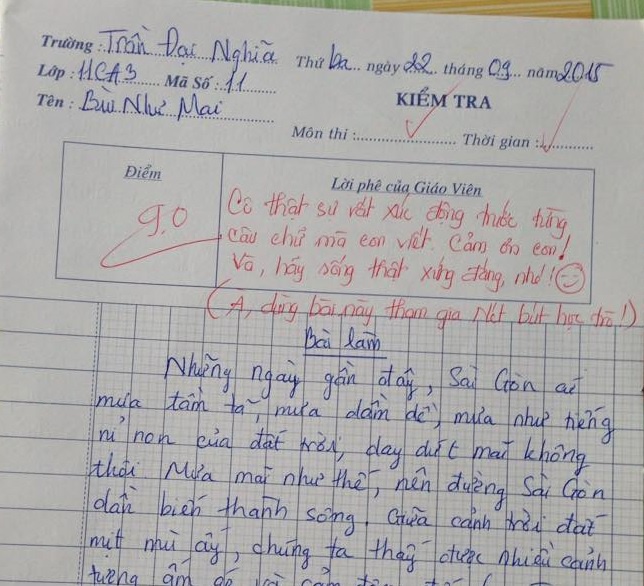 Trường : Trần Đại Nghĩa Thứ ba.. ngày 22.. tháng 09... năm 2015
Lớp : 11CA3 Mã Số : 11
Tên : Bùi Như Mai
KIỂM TRA
Môn thi : Thời gian :
Điểm
Lời phê của Giáo Viên
9.0
Cô thật sự rất xúc động trước từng
câu chữ mà con viết. Cảm ơn con!
Và, hãy sống thật xứng đáng, nhé!
(À, dùng bài này tham gia Nét bút học trò!)
Bài làm
Những ngày gần đây, Sài Gòn cứ
mưa tầm tã, mưa dầm dề, mưa như tiếng
nỉ non của đất trời, day dứt mãi không
thôi. Mưa mãi như thế, nên đường Sài Gòn
dần biến thành sông. Giữa cảnh trời đất
mịt mù ấy, chúng ta thấy được nhiều cảnh
tượng ấm